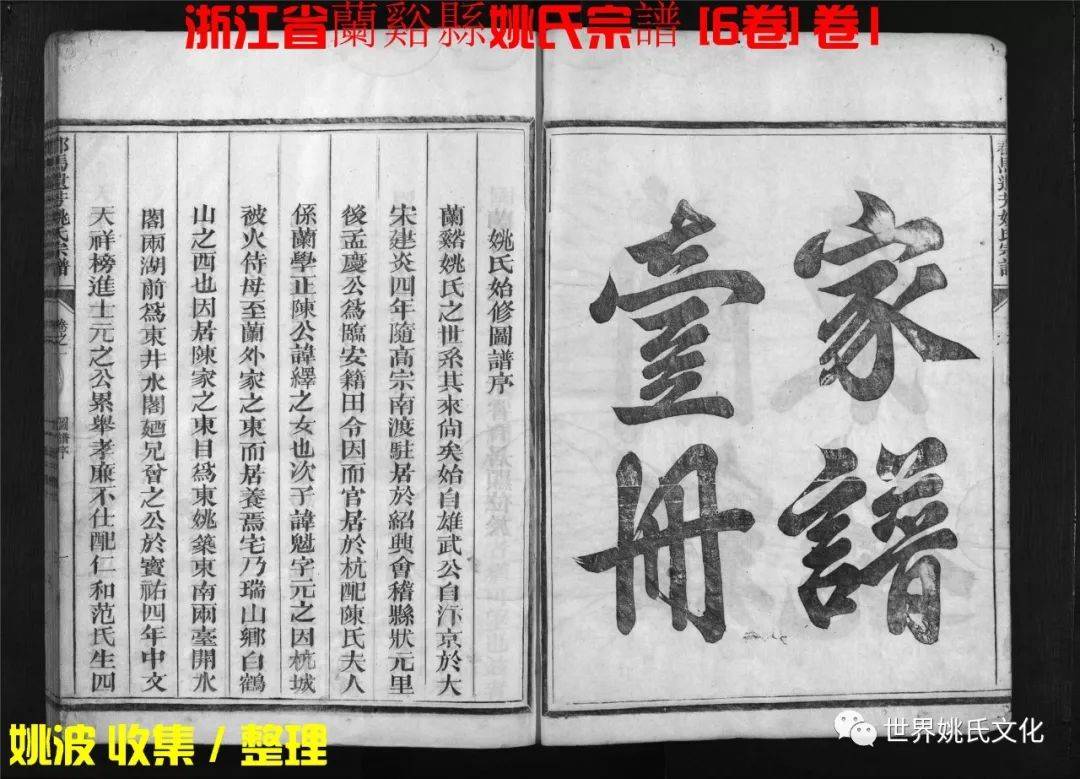 浙江省蘭谿縣姚氏宗譜 [6卷] 卷1
家譜
壹冊
姚氏始修圖譜序
蘭谿姚氏之世系其來尚矣始自雄武公自汴京於大
宋建炎四年隨高宗南渡駐居於紹興會稽縣狀元里
後孟慶公爲臨安籍田令因而官居於杭配陳氏夫人
係蘭學正陳公諱繹之女也次子諱魁字元之因杭城
被火侍母至蘭外家之東而居養焉宅乃瑞山鄉白鶴
山之西也因居陳家之東目爲東姚築東南兩臺開水
閣兩湖前爲東井水閣廼兄會之公於寳祐四年中文
天祥榜進士元之公累舉孝廉不仕配仁和范氏生四
馬遺芳姚氏宗譜
卷之一
圖譜序
一
姚波 收集 / 整理
世界姚氏文化